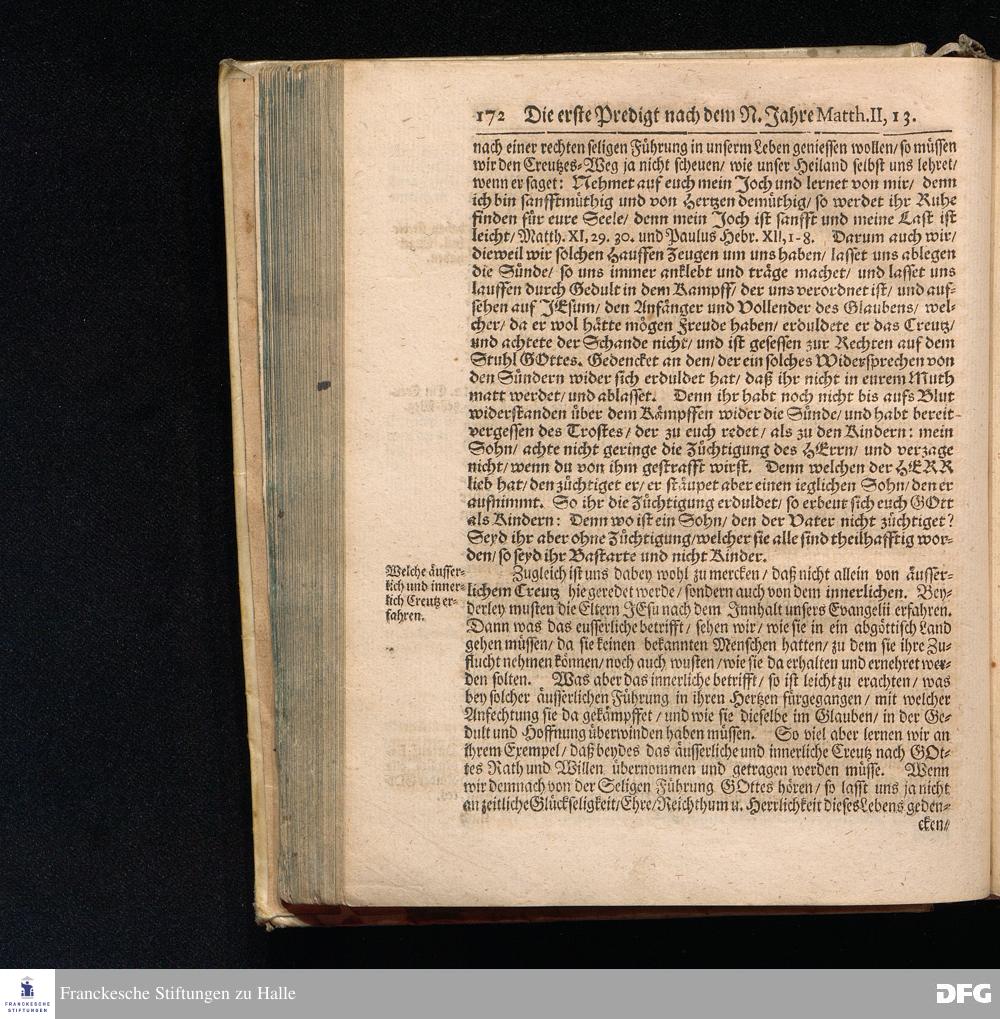 172 Die erste Predigt nach dem N. Jahre Matth. II, 13.
nach einer rechten seligen Führung in unserm Leben geniessen wollen/ so müssen
wir den Creutzes-Weg ja nicht scheuen/ wie unser Heiland selbst uns lehret/
wenn er saget: Nehmet auf euch mein Joch und lernet von mir/ denn
ich bin sanfftmüthig und von Hertzen demüthig/ so werdet ihr Ruhe
finden für eure Seele/ denn mein Joch ist sanfft und meine Last ist
leicht/ Matth. XI, 29. 30. und Paulus Hebr. XII, 1-8. Darum auch wir/
dieweil wir solchen Hauffen Zeugen um uns haben/ lasset uns ablegen
die Sünde/ so uns immer anklebt und träge machet/ und lasset uns
lauffen durch Gedult in dem Kampff/ der uns verordnet ist/ und auf-
sehen auf JEsum/ den Anfänger und Vollender des Glaubens/ wel-
cher/ da er wol hätte mögen Freude haben/ erduldete er das Creutz/
und achtete der Schande nicht/ und ist gesessen zur Rechten auf dem
Stuhl GOttes. Gedencket an den/ der ein solches Widersprechen von
den Sündern wider sich erduldet hat/ daß ihr nicht in eurem Muth
matt werdet/ und ablasset. Denn ihr habt noch nicht bis aufs Blut
widerstanden über dem Kämpffen wider die Sünde/ und habt bereit-
vergessen des Trostes/ der zu euch redet/ als zu den Kindern: mein
Sohn/ achte nicht geringe die Züchtigung des HErrn/ und verzage
nicht/ wenn du von ihm gestrafft wirst. Denn welchen der HERR
lieb hat/ den züchtiget er/ er stäupet aber einen ieglichen Sohn/ den er
aufnimmt. So ihr die Züchtigung erduldet/ so erbeut sich euch GOtt
als Kindern: Denn wo ist ein Sohn/ den der Vater nicht züchtiget?
Seyd ihr aber ohne Züchtigung/ welcher sie alle sind theilhafftig wor-
den/ so seyd ihr Bastarte und nicht Kinder.
Welche äusser-
lich und inner-
lich Creutz er-
fahren.
Zugleich ist uns dabey wohl zu mercken/ daß nicht allein von äusser-
lichem Creutz hie geredet werde/ sondern auch von dem innerlichen. Bey-
derley musten die Eltern JEsu nach dem Innhalt unsers Evangelii erfahren.
Dann was das eusserliche betrifft/ sehen wir/ wie sie in ein abgöttisch Land
gehen müssen/ da sie keinen bekannten Menschen hatten/ zu dem sie ihre Zu-
flucht nehmen können/ noch auch wusten/ wie sie da erhalten und ernehret wer-
den solten. Was aber das innerliche betrifft/ so ist leicht zu erachten/ was
bey solcher äusserlichen Führung in ihren Hertzen fürgegangen/ mit welcher
Anfechtung sie da gekämpffet/ und wie sie dieselbe im Glauben/ in der Ge-
dult und Hoffnung überwinden haben müssen. So viel aber lernen wir an
ihrem Exempel/ daß beydes das äusserliche und innerliche Creutz nach GOt-
tes Rath und Willen übernommen und getragen werden müsse. Wenn
wir demnach von der Seligen Führung GOttes hören/ so lasst uns ja nicht
an zeitliche Glückseligkeit/ Ehre/ Reichthum u. Herrlichkeit dieses Lebens geden-
cken/
FRANCKESCHE
STIFTUNGEN
Franckesche Stiftungen zu Halle
DFG